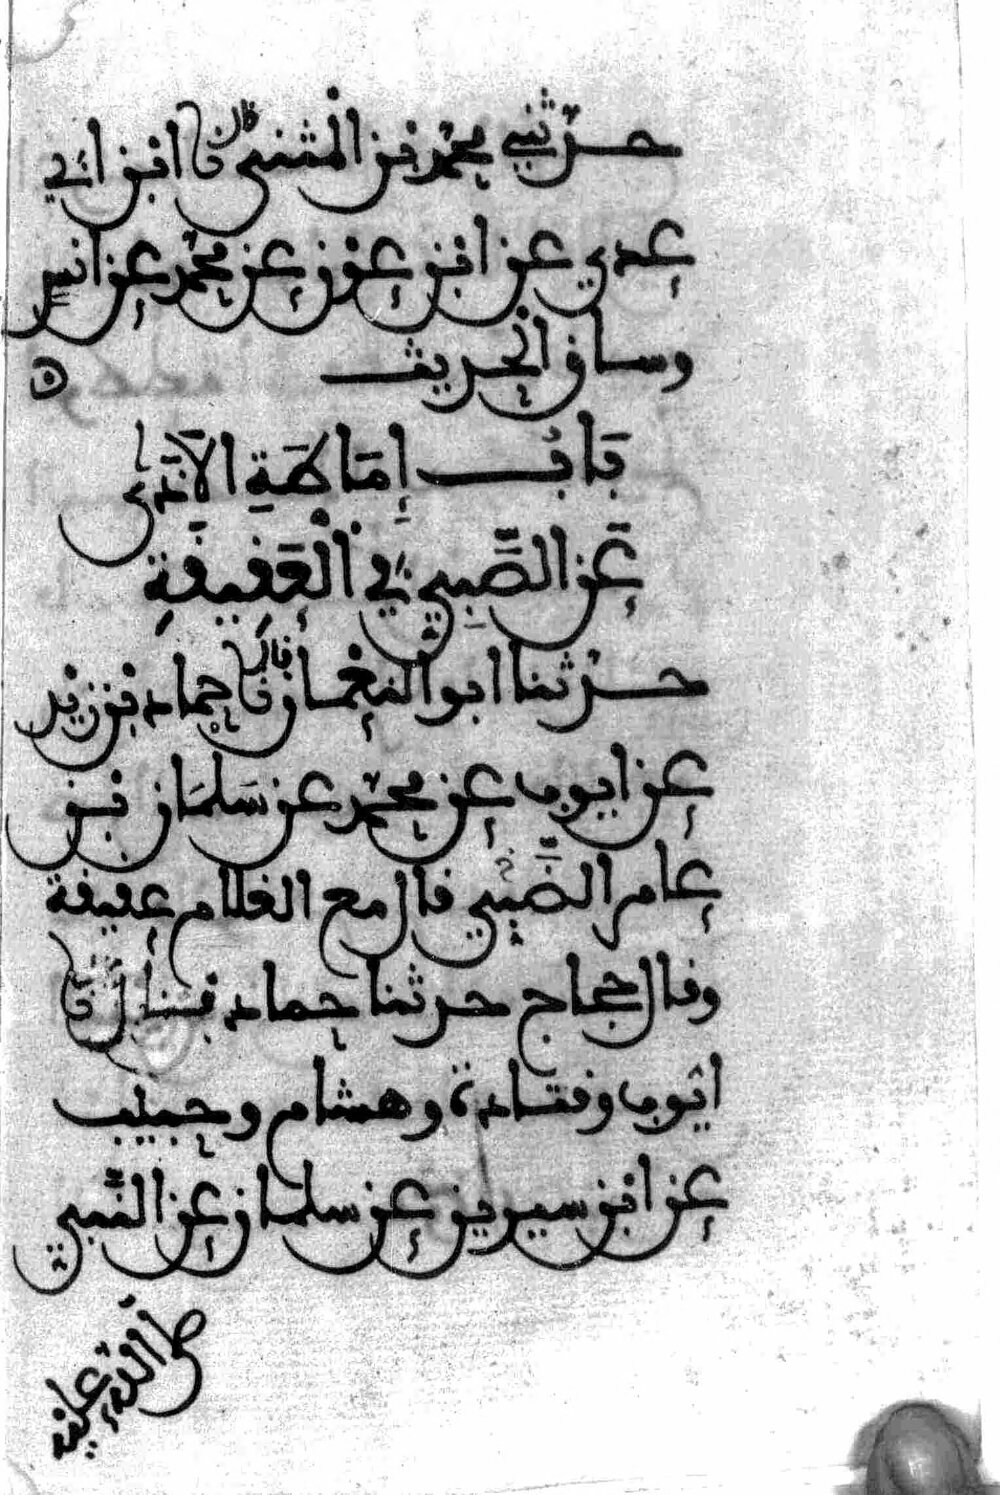 حدثني محمد بن المثنى قال نا ابن ابي
عدي عن ابن عون عن محمد عن انس
وساق الحديث ه
بَابُ إِمَاطَةِ الاَذَى
عَنِ الصَّبِيِّ فِي الْعَقِيقَةِ
حدثنا ابو النعمان قال نا حماد بن زيد
عن ايوب عن محمد عن سَلمَان بن
عامر الضَّبي قال مع الغلام عقيقة
وقال حجاج حدثنا حماد قال نا
ايوب وقتادة وهشام وحبيب
عن ابن سيرين عن سلمان عن النَّبي
صلى الله عليه